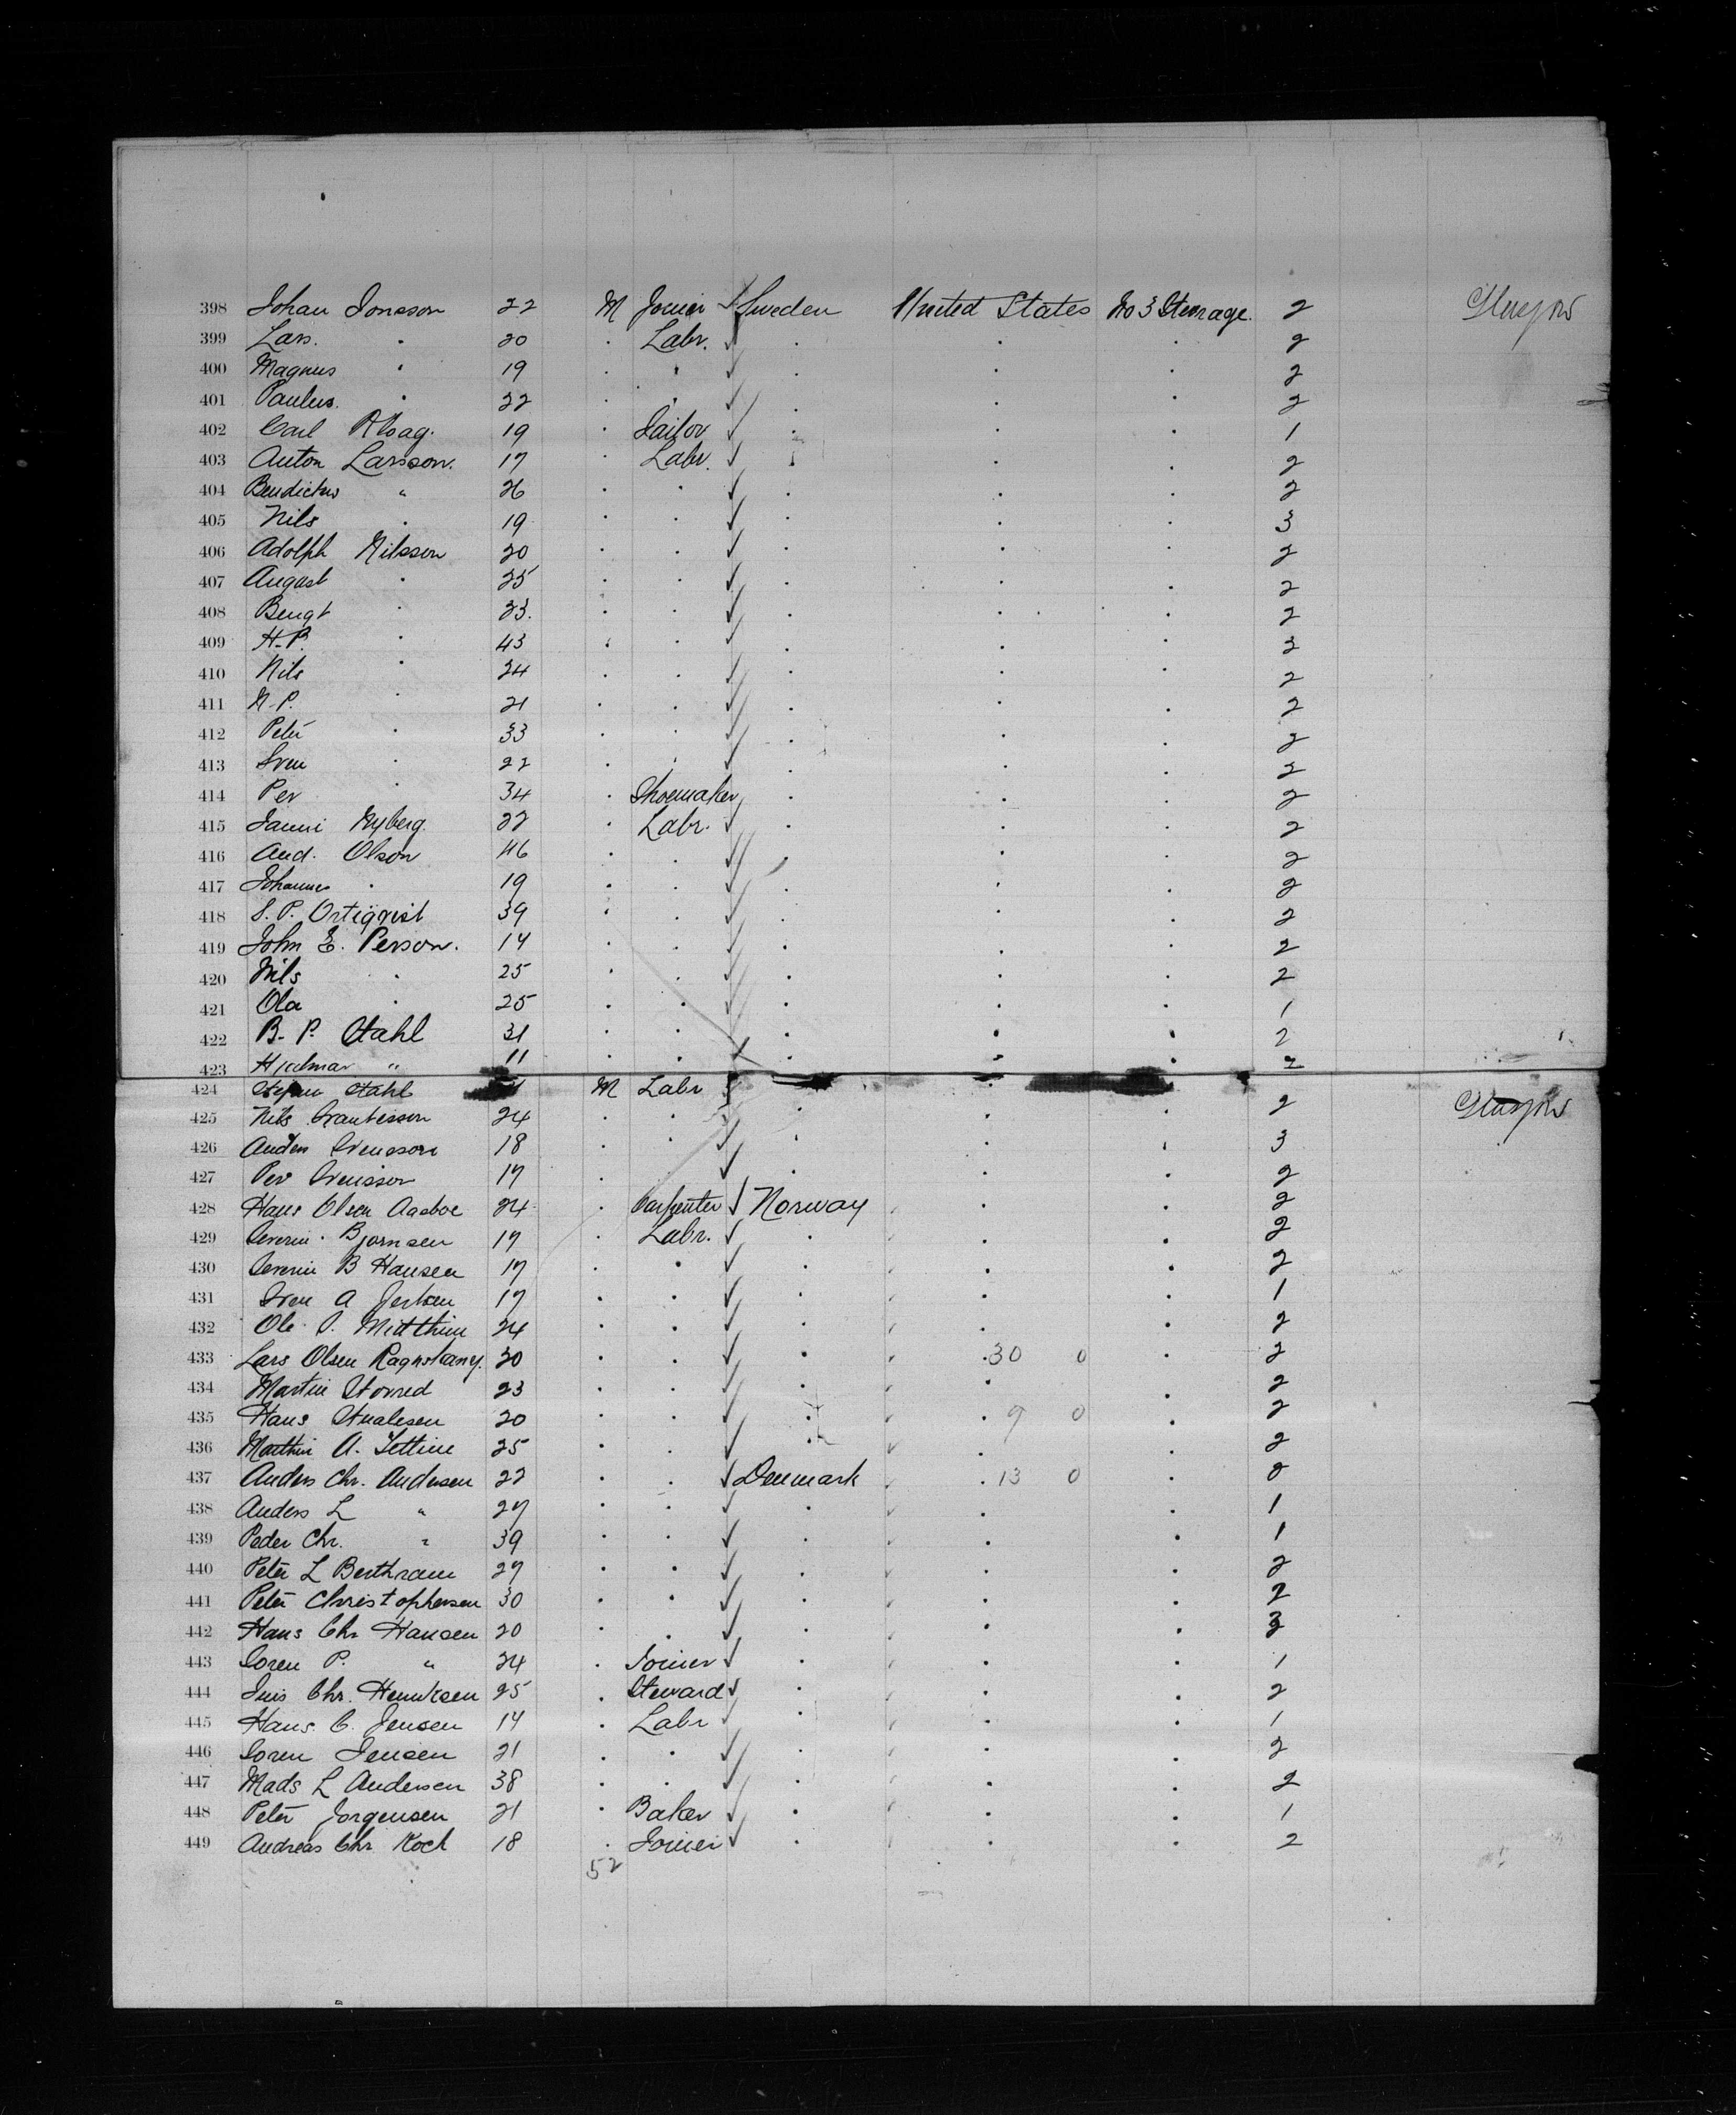 398 Johan Jonsson 22 M Joiner Sweden United States No 3 Steerage. 2 Glasgow
399 Lars. " 20 . Labr. . . . 2
400 Magnus " 19 . . . . . 2
401 Paulus. " 22 . . . . . 2
402 Carl 19 . . . . 1
403 Anton Larsson. 17 . Labr. . . . 2
404 Bendictus " 26 . . . . . 2
405 Nils . 19 . . . . . 3
406 Adolph Nilsson 20 . . . . . 2
407 August " 25 . . . . . 2
408 Bengt " 23. . . . . . 2
409 H.P. " 43 . . . . . 2
410 Nils " 24 . . . . . 2
411 N.P. " 21 . . . . . 2
412 Peter " 33 . . . . . 2
413 Sven " 22 . . . . . 2
414 Per " 34 . Shoemaker . . . 2
415 Nyberg. 22 . Labr. . . . 2
416 And. Olson 46 . . . . . 2
417 Johannes . 19 . . . . . 2
418 S.P. Ortiqvist 39 . . . . . 2
419 John E. Person. 14 . . . . . 2
420 Nils . 25 . . . . . 2
421 Ola . 25 . . . . . 1
422 B.P. Stahl 31 . . . . . 2
423 Hjalmar " 11 . . . . . 2
424 Stahl M Labr . . . 2 Glasgow
425 Nils 24 . . . . .
426 Svensson 18 . . . . . 3
427 Per Svensson 17 . . . . 2
428 Hans Olsen Aasboe 24 . Carpenter Norway . . 2
429 Severin Bjornsen 17 . Labr. . . . 2
430 Severin B Hansen 17 . . . . . 2
431 Sven A 17 . . . . . 1
432 Ole P. Midtthun 24 . . . . . 2
433 Lars Olsen 20 . . . 30 0 . 2
434 Martin 23 . . . . . 2
435 Hans 20 . . . 9 0 . 2
436 A. 25 . . . . . 2
437 Anders Chr. Andersen 22 . . Denmark 13 0 .
438 Anders L " 27 . . . . . 1
439 Peder Chr. " 39 . . . . . 1
440 Peter L Berthram 27 . . . . . 2
441 Peter Christophersen 30 . . . . . 2
442 Hans Chr Hansen 20 . . . . . 3
443 Soren P. " 24 . Joiner . . . 1
444 Chr. Henriksen 25 . Steward . . . 2
445 Hans C. Jensen 14 . Labr . . . 1
446 Soren Jensen 21 . . . . . 2
447 Mads L Andersen 38 . . . . . 2
448 Peter Jorgensen 21 . Baker . . . 1
449 Andreas Chr Koch 18 . Joiner . . . 2
52